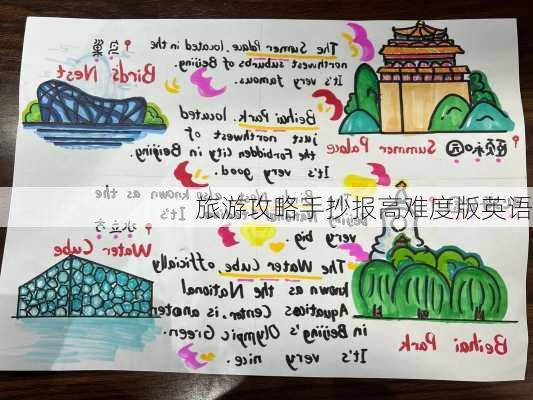 鸟巢
Bird's Nest
The Sumer Palaue. located in the
northwest suburbs of Beijing.
It's very famous.
颐和园
Summer Palace
Beihai Park. located
just northwest of
the Forbidden City in Beijing.
It's very good.
also known as the
It's
very big.
旅游攻略手抄报高难度版英语
水立方
Water Cube
The Water Cube officially
known as the National
Aquatics Center, is
in Beijing's Olympic Green.
It's very nice.
Beihai Park